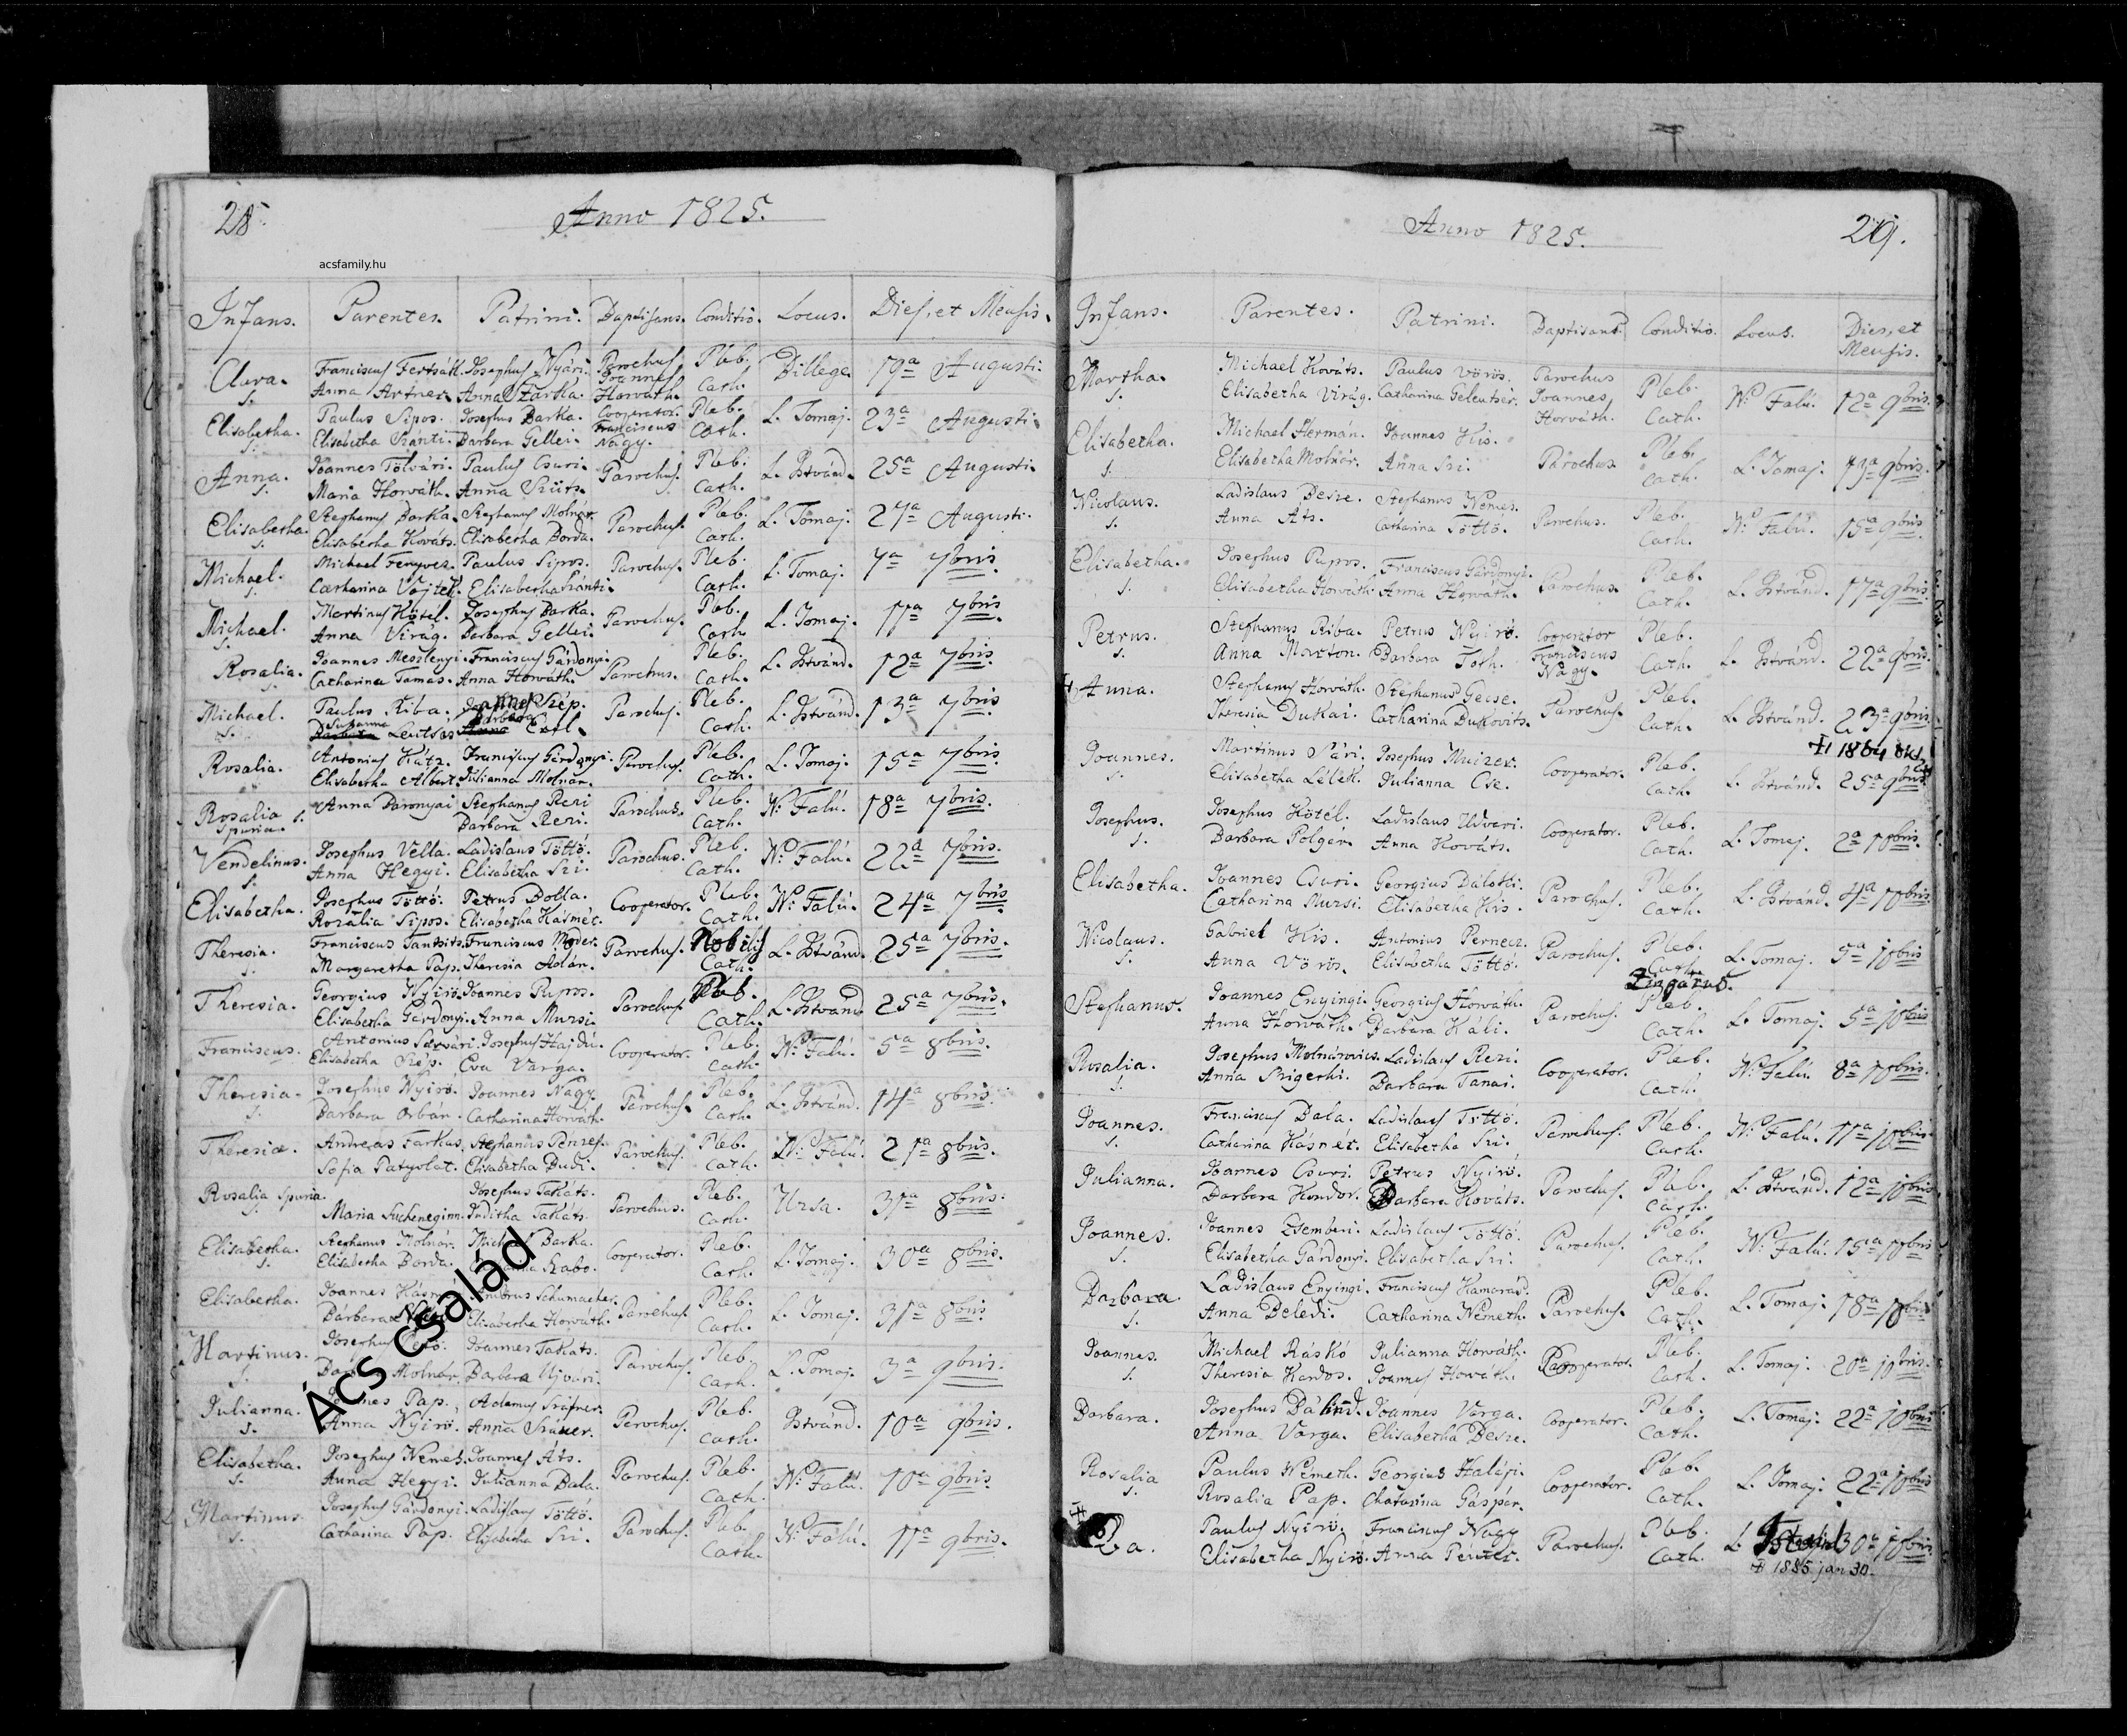 28.
Anno 1825.
acsfamily.hu
Infans. Parentes. Patrini. Baptisans. Conditio. Locus. Dies, et Mensis.
Clara. Franciscus Josephus Nyári. Parochus Pleb. Billege. 19a Augusti.
s. Anna Artner. Anna Zarka. Joannes Horváth. Cath.
Elisabetha. Paulus Sipos. Josephus Barka. Cooperator. Pleb. L. Tomaj. 23a Augusti.
s. Elisabetha Szánti. Barbara Gellei. Franciscus Nagy. Cath.
Anna. Joannes Tölvári. Paulus Csuri. Parochus. Pleb. L. Istvánd. 25a Augusti.
s. Maria Horváth. Anna Szüts. Cath.
Elisabetha. Stephanus Barka. Stephanus Molnár. Parochus. Pleb. L. Tomaj. 27a Augusti.
s. Elisabetha Kováts. Elisabetha Borda. Cath.
Michael. Michael Fenyves. Paulus Sipos. Parochus. Pleb. L. Tomaj. 7a 7bris.
s. Catharina Vojtek. Elisabetha Szánti. Cath.
Michael. Martinus Kötél. Josephus Barka. Parochus. Pleb. L. Tomaj. 11a 7bris.
s. Anna Virág. Barbara Gellei. Cath.
Rosalia. Joannes Meszlenyi. Franciscus Gárdonyi. Parochus. Pleb. L. Istvánd. 12a 7bris.
s. Catharina Tamas. Anna Horváth. Cath.
Michael. Paulus Riba. Joannes Szép. Parochus. Pleb. L. Istvánd. 13a 7bris
s. Susanna Barbara Barbara Anna Ertl. Cath.
Rosalia. Antonius Kátz. Franciscus Gárdonyi. Parochus. Pleb. L. Tomaj. 15a 7bris.
Elisabetha Albert. Julianna Molnár. Cath.
Rosalia s. Anna Baronyai Stephanus Rezi Parochus. Pleb. N. Falú. 18a 7bris.
Spuria. Barbara Rezi. Cath.
Vendelinus. Josephus Vella. Ladislaus Töttö. Parochus. Pleb. N. Falú. 22a 7bris.
s. Anna Hegyi. Elisabetha Szi. Cath.
Elisabetha. Josephus Töttö. Petrus Bolla. Cooperator. Pleb. N. Falú. 24a 7bris
Rozalia Sipos. Elisabetha Kásmér. Cath.
Theresia. Franciscus Franciscus Móder. Parochus. Nobilis L. Istvánd. 25a 7bris.
s. Margaretha Pap. Theresia Adán. Cath.
Theresia. Georgius Nyirö. Joannes Pupos. Parochus. Pleb. L. Istvánd. 25a 7bris.
Elisabetha Gárdonyi. Anna Mursi. Cath.
Franciscus. Antonius Sárvári. Josephus Hajdú. Cooperator. Pleb. N. Falú. 5a 8bris.
Elisabetha Szép. Eva Varga. Cath.
Theresia. Josephus Nyirö. Joannes Nagy. Parochus. Pleb. L. Istvánd. 14a 8bris.
s. Barbara Orbán. Catharina Horváth. Cath.
Theresia. Andreas Farkas. Stephanus Parochus. Pleb. N. Falú. 21a 8bris.
Sofia Patyolat. Elisabetha Budi. Cath.
Rosalia Spuria. Josephus Takáts. Parochus. Pleb. Ursa. 31a 8bris.
s. Maria Juditha Takáts. Cath.
Elisabetha. Stephanus Molnár. Barka. Cooperator. Pleb. L. Tomaj. 30a 8bris.
s. Elisabetha Borda. Szabo. Cath.
Elisabetha. Joannes Schumacher. Parochus. Pleb. L. Tomaj. 31a 8bris
Bárbara Elisabetha Horváth. Cath.
Martinus. Josephus Joannes Takats. Parochus. Pleb. L. Tomaj. 3a 9bris.
s. Molnár. Barbara Ujvári. Cath.
Julianna. Pap. Adamus Parochus. Pleb. Istvánd. 10a 9bris.
s. Anna Nyirö. Anna Cath.
Elisabetha. Josephus Németh. Joannes Áts. Parochus. Pleb. N. Falú. 10a 9bris.
s. Anna Hegyi. Julianna Bala. Cath.
Martinus. Josephus Gárdonyi. Ladislaus Töttö. Parochus. Pleb. N. Falú. 11a 9bris.
s. Catharina Pap. Elisabetha Szi. Cath.
Ács család
Anno 1825.
29.
Infans. Parentes. Patrini. Baptisans. Conditio. Locus. Dies, et Mensis.
Martha. Michael Kováts. Paulus Vörös. Parochus Pleb. N. Falú. 12a 9bris.
s. Elisabetha Virág. Catharina Gelentsér. Joannes Horváth. Cath.
Elisabetha. Michael Hermán. Joannes Kis. Parochus Pleb. L. Tomaj. 13a 9bris.
s. Elisabetha Molnár. Anna Szi. Cath.
Nicolaus. Ladislaus Besze. Stephanus Nemes. Parochus. Pleb. N. Falú. 15a 9bris.
s. Anna Áts. Catharina Töttö. Cath.
Elisabetha. Josephus Pupos. Franciscus Gárdonyi. Parochus. Pleb. L. Istvánd. 17a 9bris.
s. Elisabetha Horváth. Anna Horváth. Cath.
Petrus. Stephanus Riba. Petrus Nyirö. Cooperator Pleb. L. Istvánd. 22a 9bris.
s. Anna Marton. Barbara Toth. Franciscus Nagy. Cath.
Anna. Stephanus Horváth. Stephanus Gecse. Parochus. Pleb. L. Istvánd. 23a 9bris.
Theresia Dukai. Catharina Bukovits. Cath.
1864 okt.
Joannes. Martinus Sári. Josephus Cooperator. Pleb. L. Istvánd. 25a 9bris.
s. Elisabetha Lélek. Julianna Cse. Cath.
Josephus. Josephus Kötél. Ladislaus Udvari. Cooperator. Pleb. L. Tomaj. 2a 10bris.
s. Barbara Polgár. Anna Kováts. Cath.
Elisabetha. Joannes Csuri. Georgius Parochus. Pleb. L. Istvánd. 4a 10bris
Catharina Mursi. Elisabetha Kis. Cath.
Nicolaus. Gabriel Kis. Antonius Pernecz. Parochus. Pleb. L. Tomaj. 5a 10bris
s. Anna Vörös. Elisabetha Töttö. Cath.
Zingarus.
Stephanus. Joannes Enyingi. Georgius Horváth. Parochus. Pleb. L. Tomaj. 5a 10bris
Anna Horváth. Barbara Káli. Cath.
Rosalia. Josephus Molnárovics. Ladislaus Rezi. Cooperator. Pleb. N. Falú. 8a 10bris.
s. Anna Szigethi. Barbara Tanai. Cath.
Joannes. Franciscus Bala. Ladislaus Töttö. Parochus. Pleb. N. Falú. 11a 10bris.
s. Catharina Kásmér. Elisabetha Szi. Cath.
Julianna. Joannes Csuri. Petrus Nyirö. Parochus. Pleb. L. Istvánd. 12a 10bris.
Barbara Kondor. Barbara Kováts. Cath.
Joannes. Joannes Zsemberi. Ladislaus Töttö. Parochus. Pleb. N. Falú. 15a 10bris
s. Elisabetha Gárdonyi. Elisabetha Szi. Cath.
Barbara. Ladislaus Enyingi. Franciscus Kamarád. Parochus. Pleb. L. Tomaj. 18a 10bris
s. Anna Beledi. Catharina Németh. Cath.
Joannes. Michael Ráskó Julianna Horváth. Cooperator. Pleb. L. Tomaj. 20a 10bris.
s. Theresia Kardos. Joannes Horváth. Cath.
Barbara. Josephus Bálind. Joannes Varga. Cooperator. Pleb. L. Tomaj. 22a 10bris
Anna Varga. Elisabetha Besze. Cath.
Rosalia Paulus Németh. Georgius Halápi. Cooperator. Pleb. L. Tomaj. 22a 10bris
s. Rosalia Pap. Chatarina Gáspár. Cath.
Paulus Nyirö. Franciscus Nagy Parochus. Pleb. L. Istvánd 30a 10bris.
Elisabetha Nyirö. Anna Péntek. Cath.
1885 jan 30.